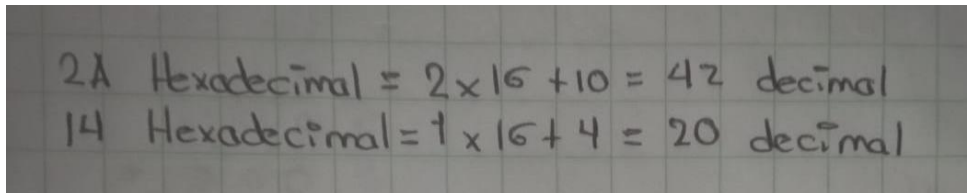 2A Hexadecimal = 2 x 16 + 10 = 42 decimal
14 Hexadecimal = 1 x 16 + 4 = 20 decimal